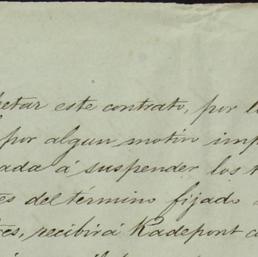 etar este contrato, por l
por algun motivo imp
ada á suspender los t
es del término fijado
es, recibirá Kadepont c